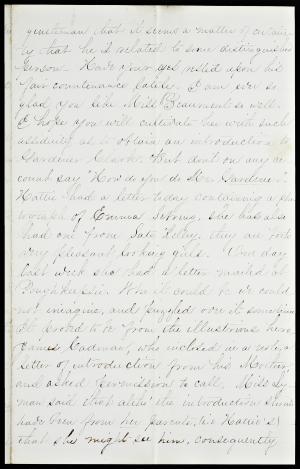 gentleman that it seems a matter of certain
ty that he is related to some distinguished
person. Have your eyes rested upon his
fair countenance lately. I am ever so
glad you like Miss Beaument so well.
I hope you will cultivate her with such
assiduity as to obtain an introduction to
Gardener Clark. But don't on any ac
count say "How do you do Mr. Gardener".
Hattie had a letter today containing a pho
tograph of Emma Strong, she has also
had one from Kate they are both
very pleasant looking girls. One day
last week she had a letter mailed at
Poughkeepsie. Who it could be we could
not imagine, and puzzled over it sometime
It proved to be from the illustrious hero
James Cadman, who inclosed in a note a
letter of introduction from his Mother,
and asked permission to call. Miss Ly
man said that the introduction should
have been from her parents, (i.e. Hattie's)
that she might see him, consequently